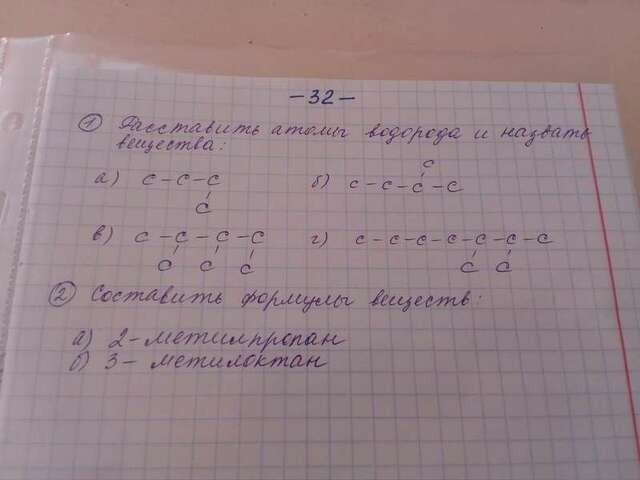 -32-
① Расставить атомы водорода и назвать
вещества:
C
а) C - C - C б) C - C - C - C
C
в) C - C - C - C г) C - C - C - C - C - C - C
C C C C C
② Составить формулы веществ:
а) 2-метилпропан
б) 3-метилоктан